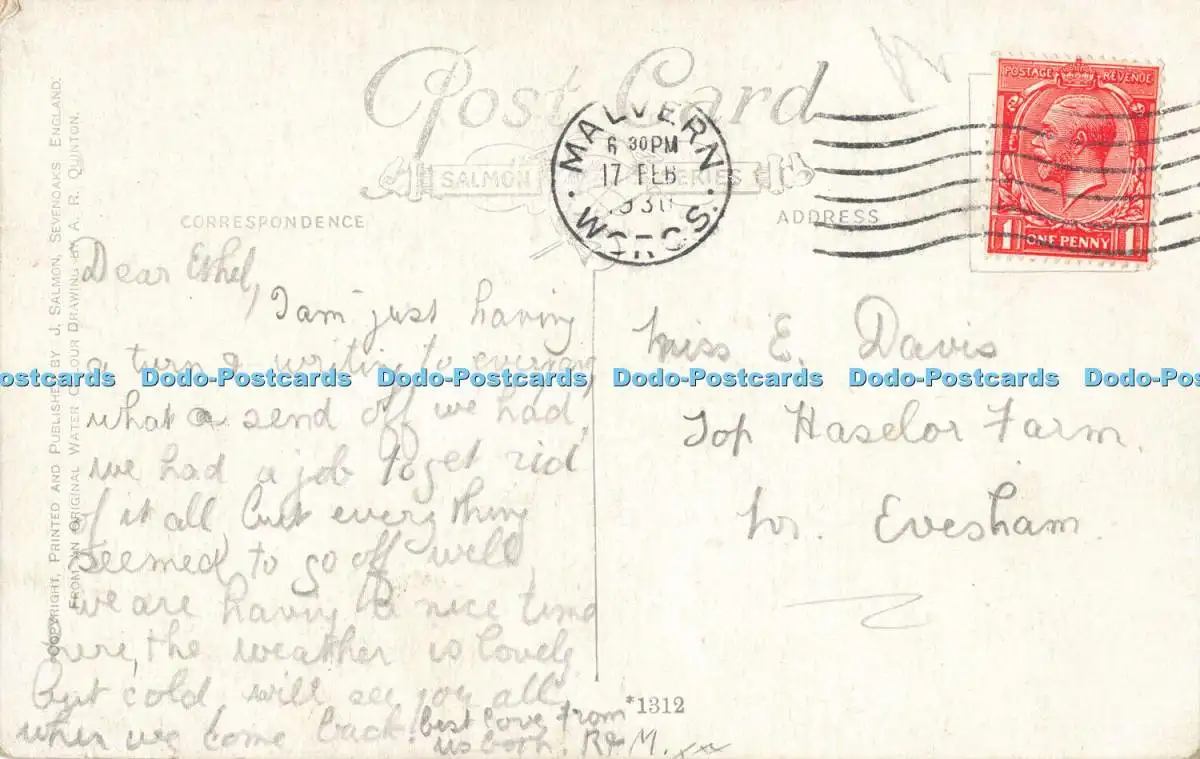 Post Card
SALMON SERIES
MALVERN
6 30PM
17 FEB
WORCS.
POSTAGE REVENUE
1 ONE PENNY 1
CORRESPONDENCE
ADDRESS
COPYRIGHT, PRINTED AND PUBLISHED BY J. SALMON, SEVENOAKS ENGLAND.
FROM AN ORIGINAL WATER COLOUR DRAWING BY A. R. QUINTON.
Dear Ethel,
I am just having
a turn writing to everyone
what a send off we had,
we had a job to get rid
of it all but every thing
seemed to go off well
we are having a nice time
here, the weather is lovely
but cold will see you all
when we come back. best love from
us both. R & M. xx
Miss E. Davis
Top Haselor Farm.
Nr. Evesham
*1312
Dodo-Postcards Dodo-Postcards Dodo-Postcards Dodo-Postcards Dodo-Postcards Dodo-Postcards